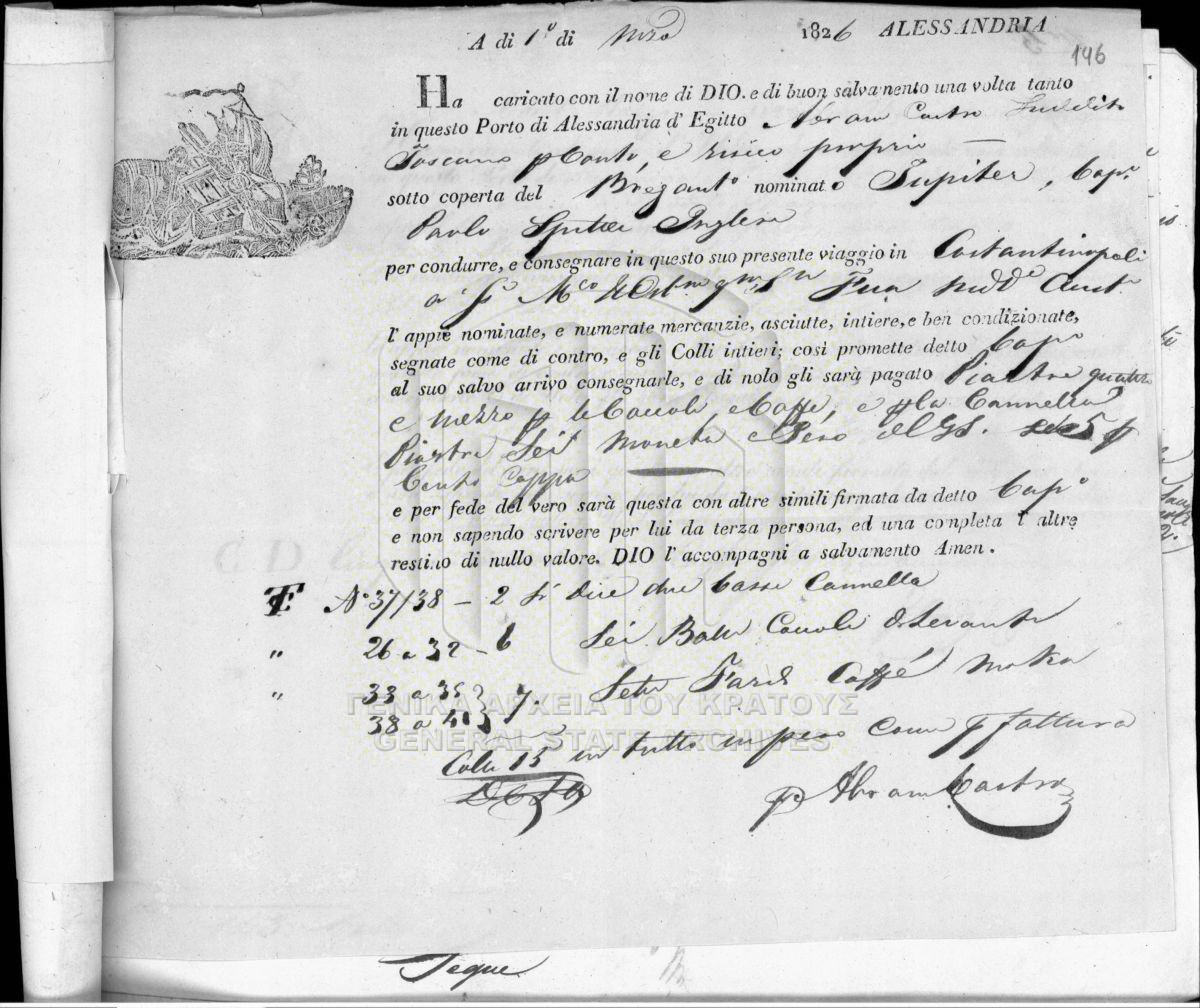 A di 1º di Mzo 1826 ALESSANDRIA
146
Ha caricato con il nome di DIO. e di buon salvamento una volta tanto
in questo Porto di Alessandria d' Egitto Abram Castro Suddito
Toscano p Conto, e risico proprio —
sotto coperta del Bregantº nominato Jupiter, Capº
Paolo Inglese
per condurre, e consegnare in questo suo presente viaggio in Costantinopoli
a Sr Mco Fua
l' appiè nominate, e numerate mercanzie, asciutte, intiere, e ben condizionate,
segnate come di contro, e gli Colli intieri; così promette detto Capº
al suo salvo arrivo consegnarle, e di nolo gli sarà pagato Piastre quattro
e mezzo p le Coccole, e Caffè, e p la Cannella
Piastre Sei Moneta 5 p
Cento Cappa
e per fede del vero sarà questa con altre simili firmata da detto Capº
e non sapendo scrivere per lui da terza persona, ed una completa l' altre
restino di nullo valore. DIO l' accompagni a salvamento Amen.
Nº 37/38 – 2 Si dice due Casse Cannella
" 26 a 32 – 6 Sei Balle Coccole di Levante
" 33 a 35 } 7. Sette Fardi Caffé Moka
38 a 41 }
ΓΕΝΙΚΑ ΑΡΧΕΙΑ ΤΟΥ ΚΡΑΤΟΥΣ
GENERAL STATE ARCHIVES
Colli 15 in tutto in peso Come p fattura
p Abram Castro
Segue